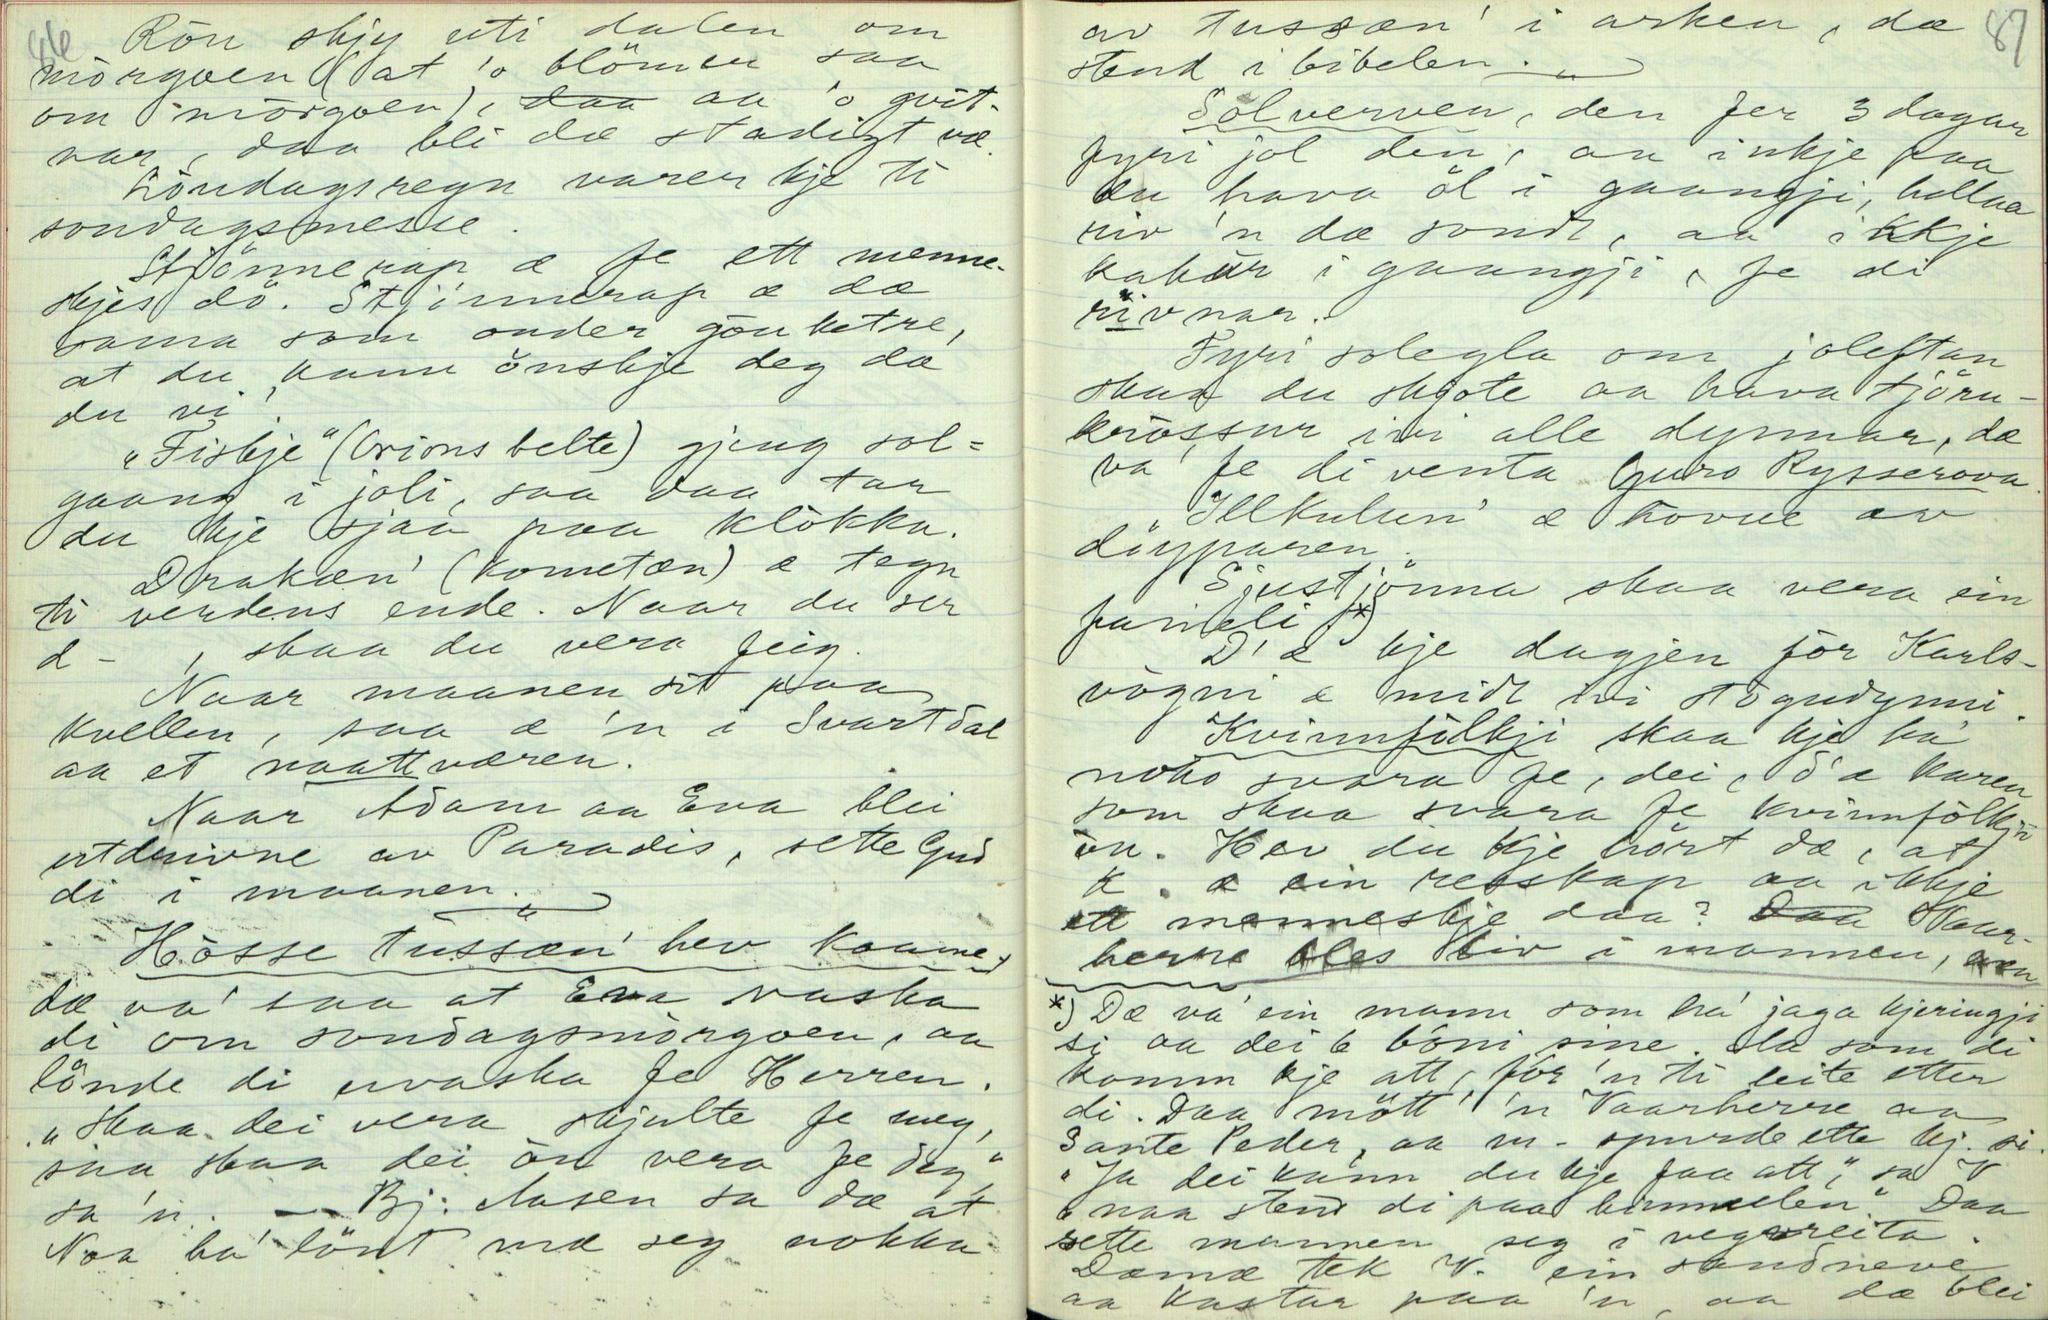 86
Rön skjy uti dalen om
mörgoen (at 'o blömer saa
om mörgoen), daa aa 'o gvit-
nar, daa bli dæ stadigt væ.
Löndagsregn varer kje ti
sondagsmesse.
Stjönnerap æ fe ett menne-
skjes dö. Stjinnerap æ dæ
sama som onder göuketre,
at du kann önskje deg dæ
du vi'.
"Fiskje" (Orions belte) gjeng sol=
gaang i joli, saa daa tar
du kje sjaa paa klokka.
Drakæn' (kometæn) æ tegn
ti verdens ende. Naar du ser
d - , skaa du vera feig.
Naar maanen sit paa
kvellen, saa æ 'n i Svartdal
aa et naattværen.
Naar Adam aa Eva blei
utdrivne av Paradis, sette Gud
di i maanen.
Hösse tussæn' hev kaame,
Dæ va' saa at Eva vaska
di om sondagsmorgoen, aa
lönde di uvaska fe Herren.
"Skaa dei vera skjulte fe meg,
saa skaa dei òu vera fe deg"
sa 'n. — Bj: Aasen sa dæ at
Noa ha' lönt mæ seg nokka
87
av tussæn' i arken, dæ
stend i bibelen.
Solverven, den fer 3 dagar
fyri jol den, aa inkje faa
du hava öl i gaangji, hellaa
riv 'n dæ sondt, aa ikkje
kabar i gaangji, fe di
rivnar.
Fyri solegla om joleftan
skaa du skjote aa hava tjöru-
krossur ivi alle dynnar, dæ
va' fe di venta Guro Rysserova.
"Illkulun' æ hovue av
döyparen.
Sjustjönna skaa vera ein
fameli *)
D' æ kje dagjen för Karls-
vogni æ midt ivi stogudynni.
Kvinnfolkji skaa kje ha'
noko svara fe, dei, d'æ karen
som skaa svara fe kvinnfolkji
òu. Hev du kje hört dæ, at
k. æ ein reiskap aa ikkje
ett menneskje daa? Daa Vaar-
herre bles liv i mannen, æn
*) Dæ va' ein mann som ha' jaga kjeringji
si aa dei 6 böni sine. Ia som di
komm kje att, for 'n ti leite etter
di. Daa mött' 'n Vaarherre aa
Sante Peder, aa m - spurde ette kj. si.
"Ja dei kann du kje faa att," sa V
"naa stend di paa himmelen." Daa
sette mannen seg i vegereita.
Dæmæ tek V. ein sandneve
aa kastar paa 'n, aa dæ blei